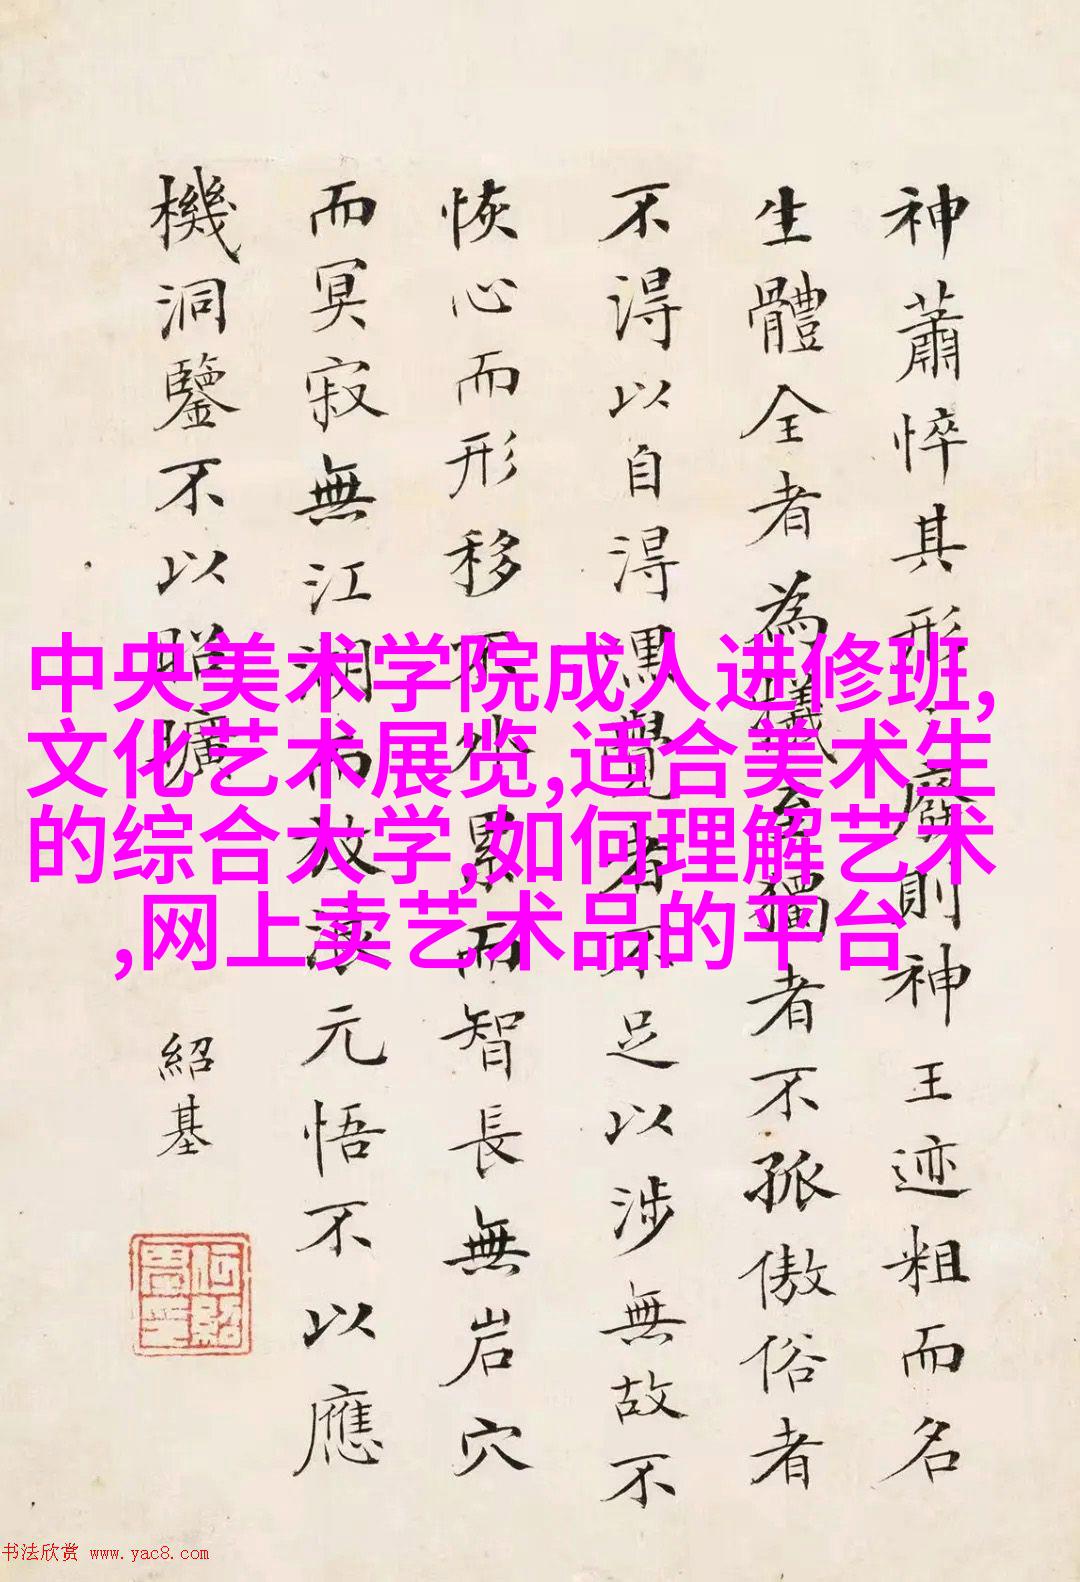 神蕭悴其形廢則神王迹粗而名
生體全者為犧獨者不孤傲俗者
不得以自得熏覺者不足以涉無故不
恢心而形移不外累而智長無岩穴
而冥寂無江湖而放浪元悟不以應
機洞鑒不以昭曠
紹基
中央美术学院成人进修班,
文化艺术展览,适合美术生
的综合大学,如何理解艺术
,网上卖艺术品的平台
书法欣赏 www.yac8.com